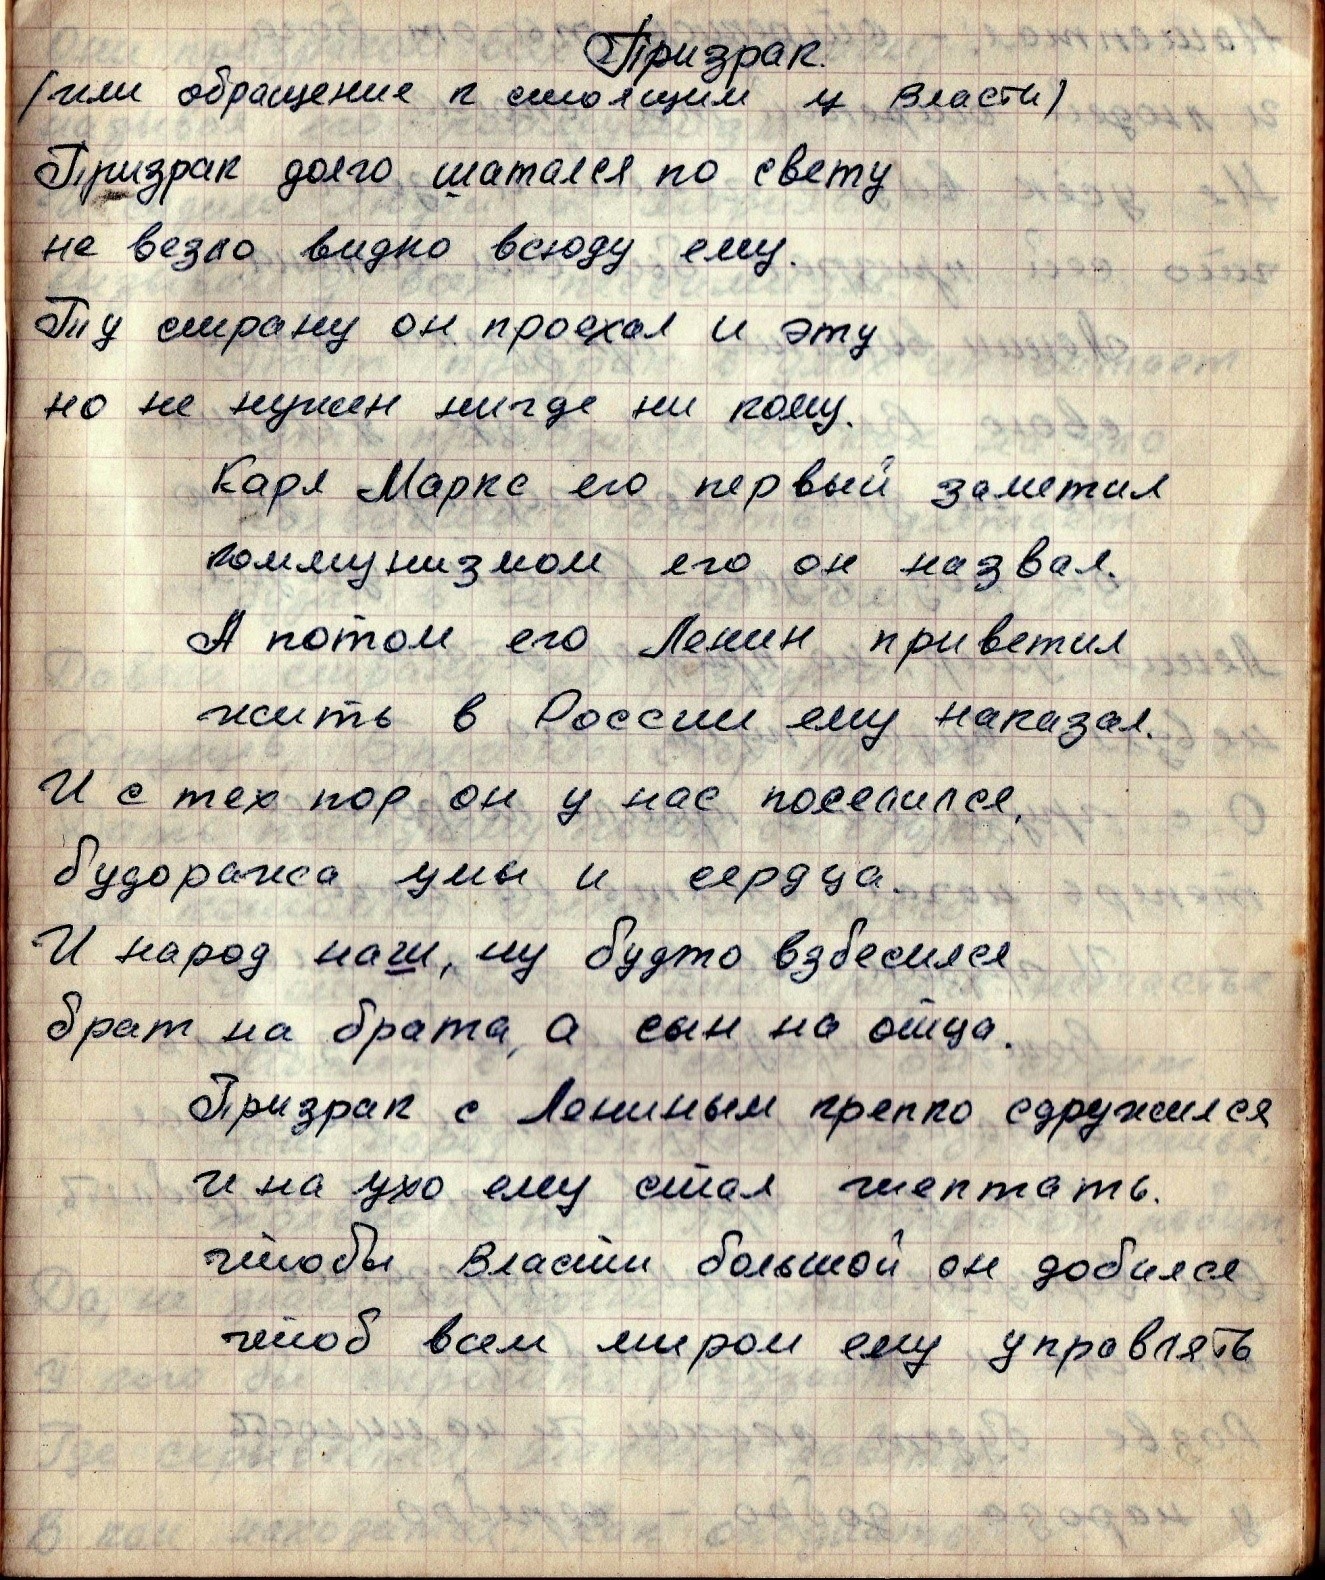 Призрак.
(или обращение к стоящим у Власти)
Призрак долго шатался по свету
не везло видно всюду ему.
Ту страну он проехал и эту
но не нужен нигде ни кому.
Карл Маркс его первый заметил
коммунизмом его он назвал.
А потом его Ленин приветил
жить в России ему наказал.
И с тех пор он у нас поселился,
будоража умы и сердца.
И народ наш, ну будто взбесился
брат на брата, а сын на отца.
Призрак с Лениным крепко сдружился
и на ухо ему стал шептать.
чтобы Власти большой он добился
чтоб всем миром ему управлять